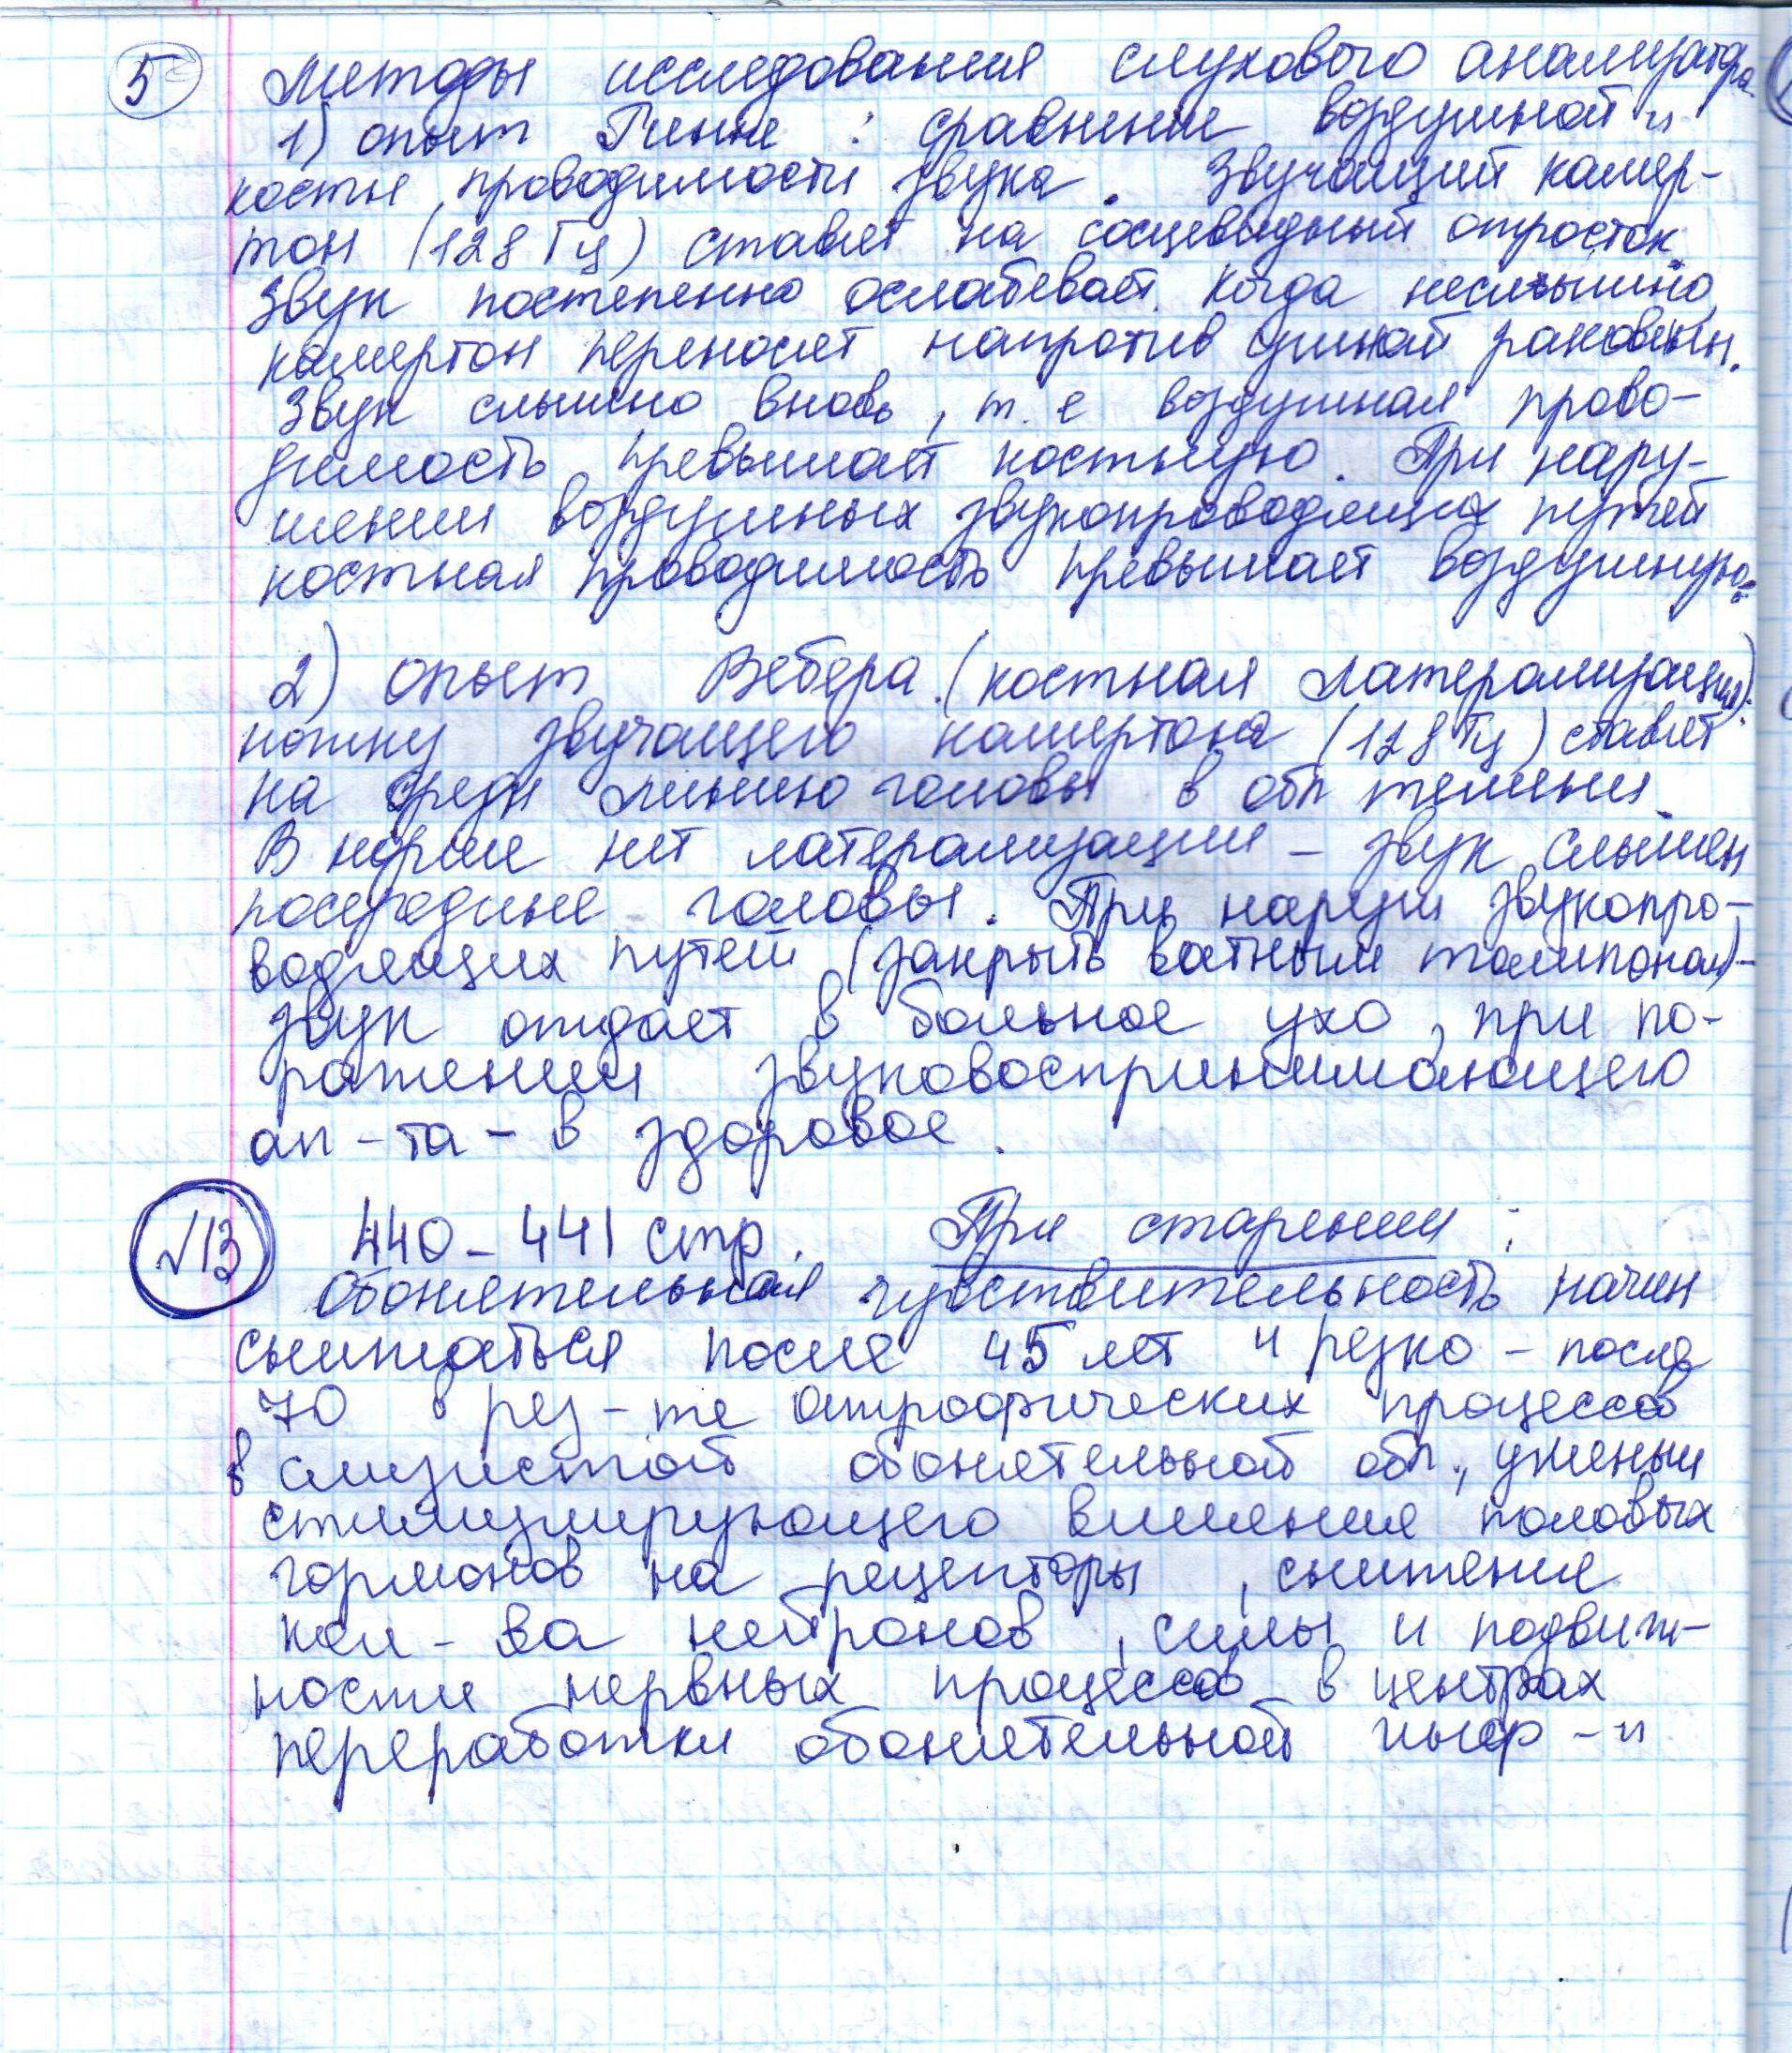 5 Методы исследования слухового анализатора
1) опыт Ринне : сравнение воздушной и
костн проводимости звука. Звучащий камер-
тон (128 Гц) ставят на сосцевидный отросток.
Звук постепенно ослабевает. Когда неслышно,
камертон переносят напротив ушной раковины.
Звук слышно вновь, т. е воздушная прово-
димость превышает костную. При нару-
шении воздушных звукопроводящих путей
костная проводимость превышает воздушную.
2) опыт Вебера (костная латерализация).
ножку звучащего камертона (128 Гц) ставят
на средн линию головы в обл темени.
В норме нет латерализации – звук слышен
посередине головы. При наруш звукопро-
водящих путей (закрыть ватным тампоном) –
звук отдает в больное ухо, при по-
ражении звуковоспринимающего
ап-та – в здоровое.
√13 440-441 стр. При старении :
Обонятельная чувствительность начин
снижаться после 45 лет и резко – после
70 в рез-те атрофических процессов
в слизистой обонятельной обл., уменьш
стимулирующего влияния половых
гормонов на рецепторы, снижения
кол-ва нейронов, силы и подвиж-
ности нервных процессов в центрах
переработки обонятельной инф-и